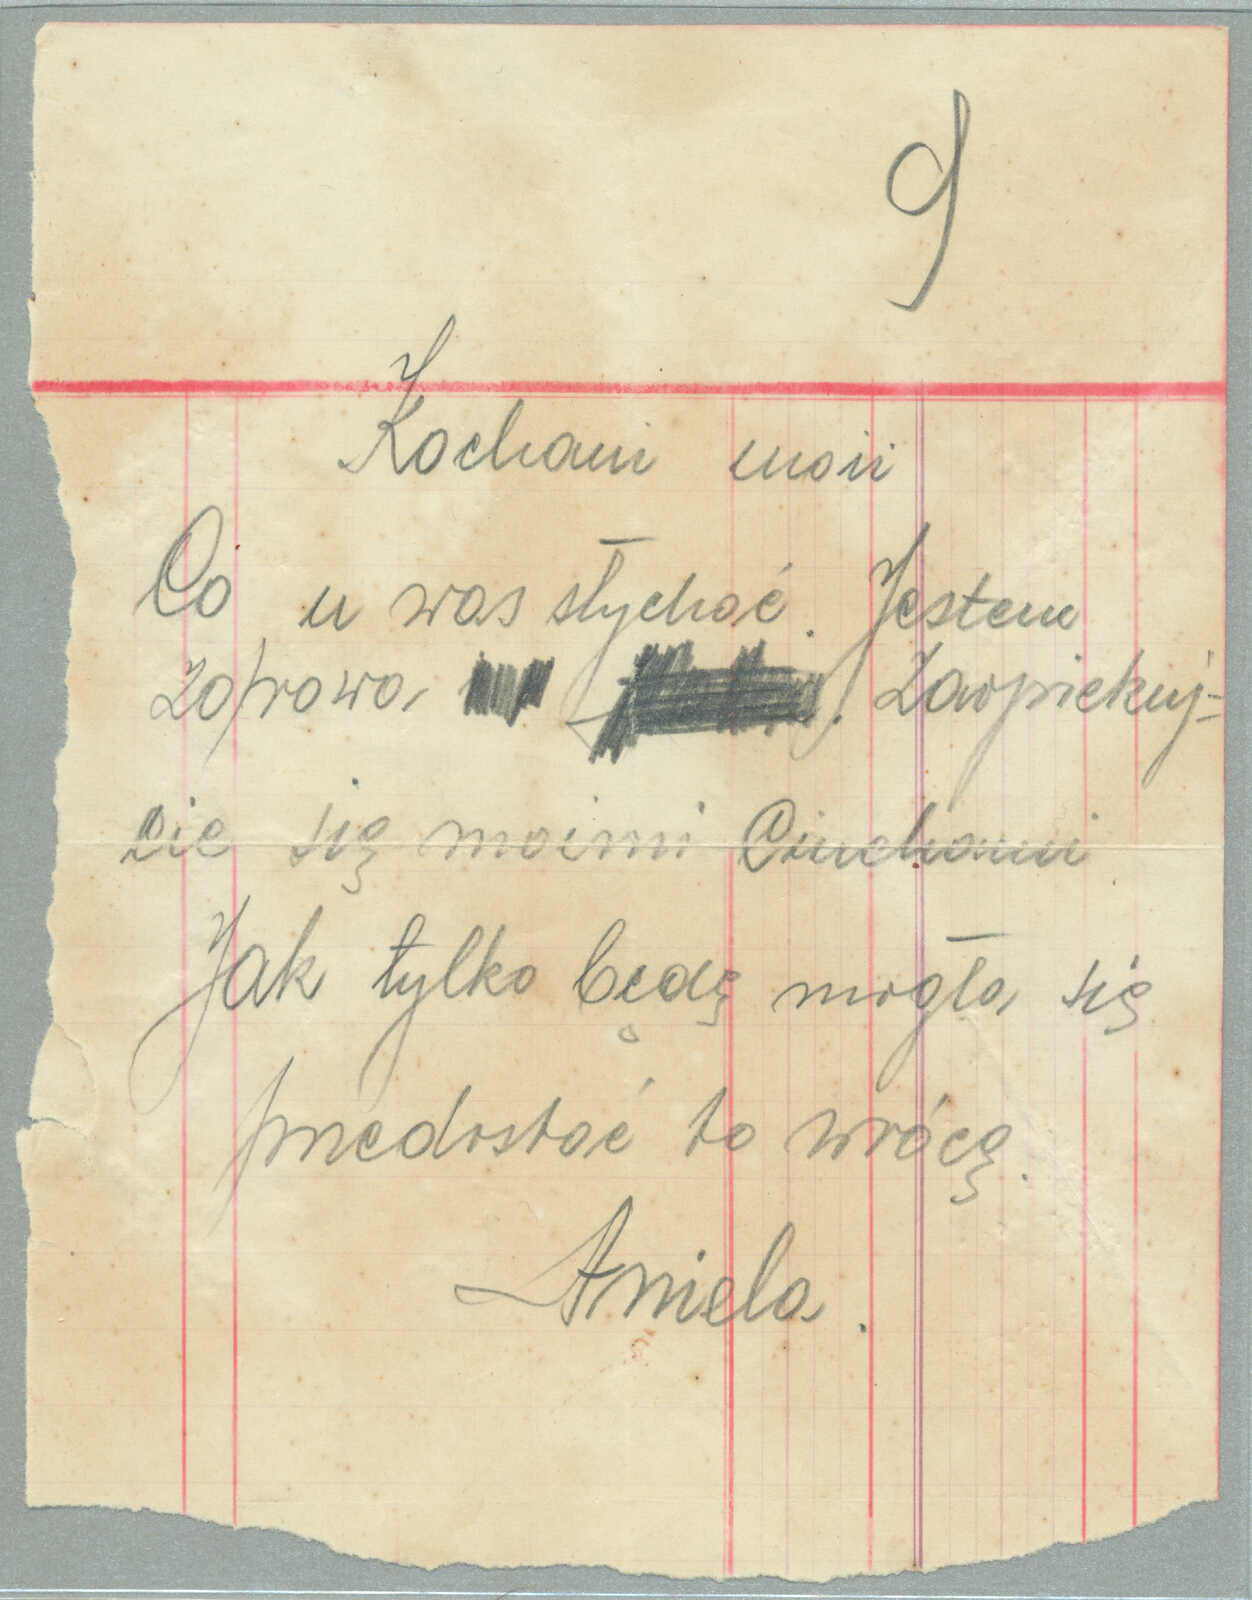 9
Kochani moii
Co u was słychać. Jestem
zdrowa . Zaopiekuj=
cie się moimi Ciuchami
Jak tylko będę mogła się
przedostać to wrócę.
Aniela.